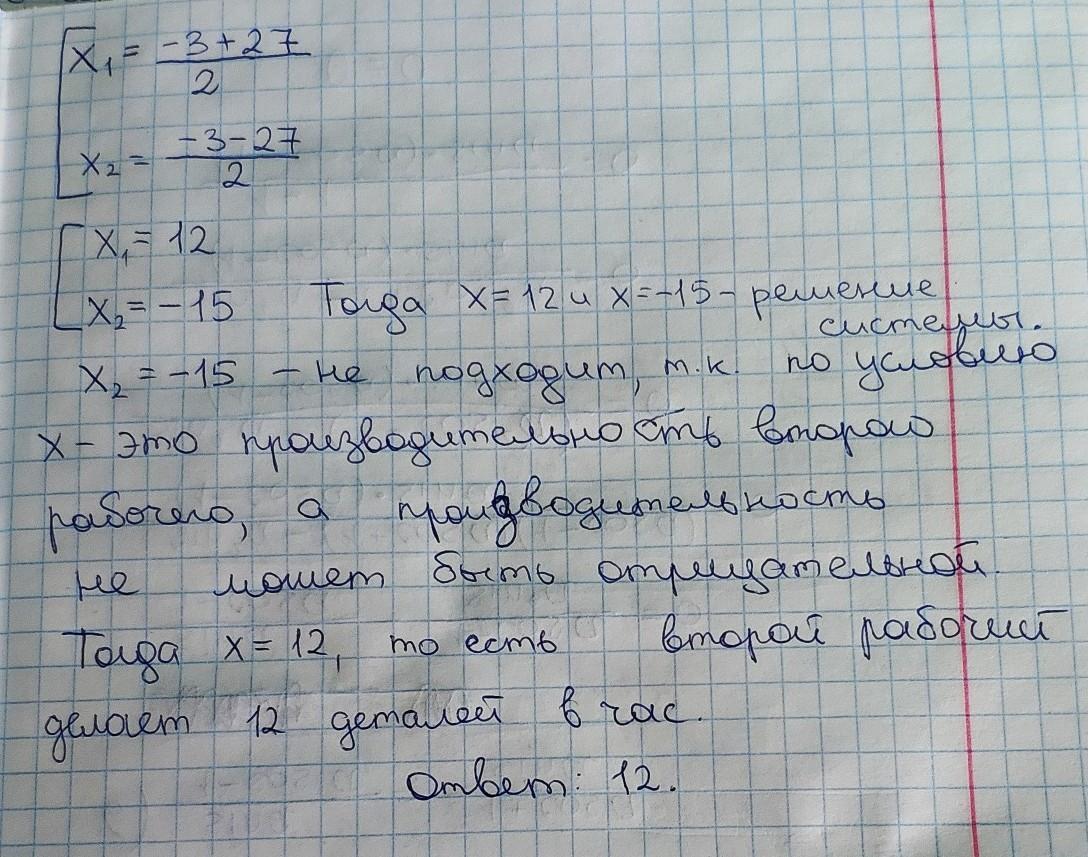 x₁ = (-3+27)/2
x₂ = (-3-27)/2
x₁ = 12
x₂ = -15 Тогда x = 12 и x = -15 - решение
системы.
x₂ = -15 - не подходит, т.к. по условию
x - это производительность второго
рабочего, а производительность
не может быть отрицательной.
Тогда x = 12, то есть второй рабочий
делает 12 деталей в час.
Ответ: 12.